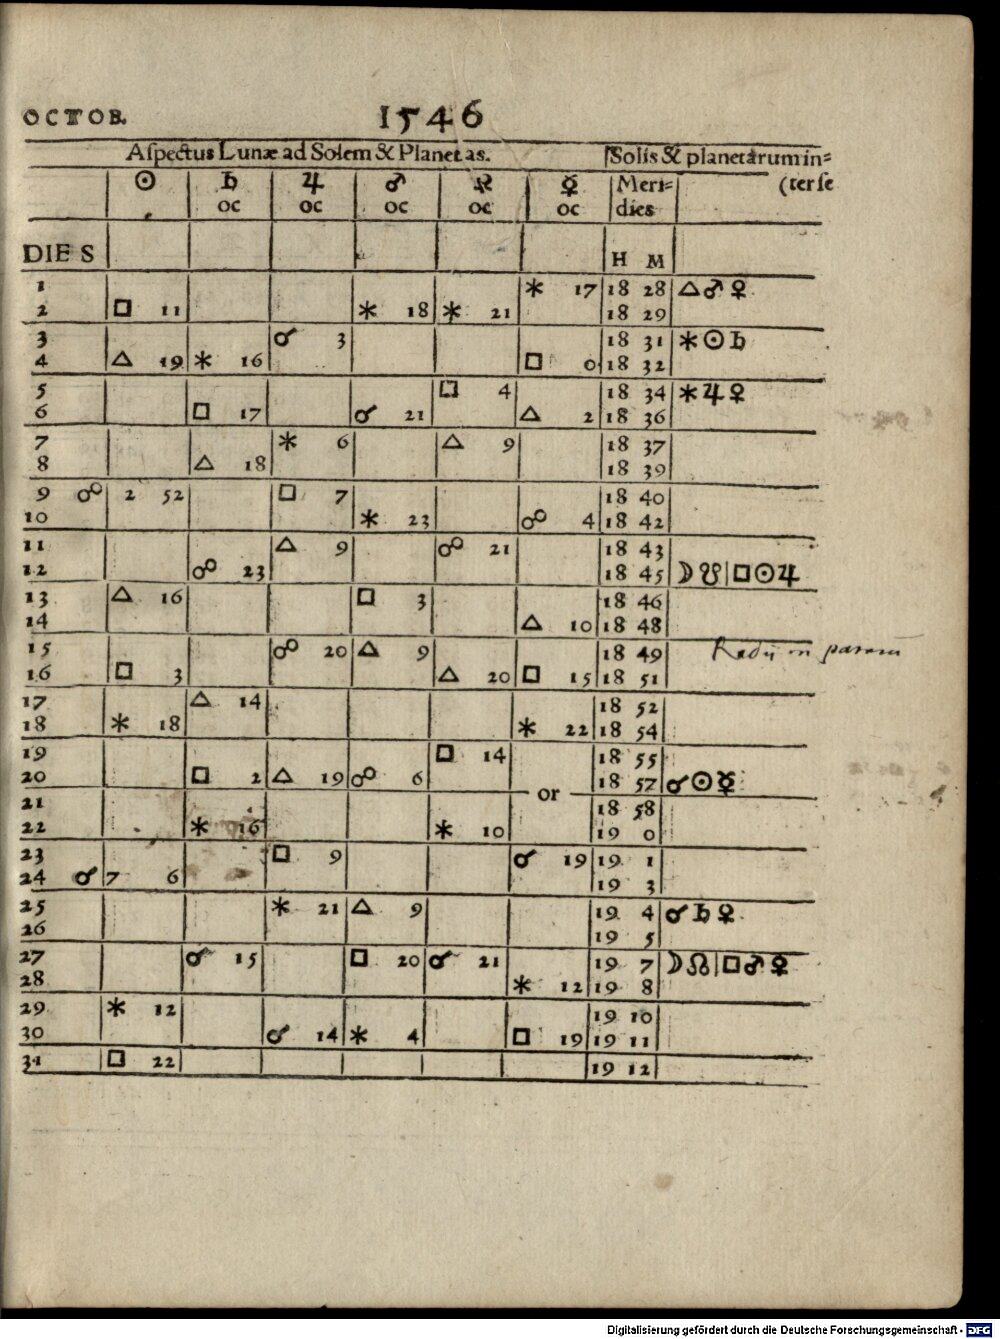 OCTOB. 1546
Aſpectus Lunæ ad Solem & Planetas. Solis & planetarum in=
☉ ♄ ♃ ♂ ♀ ☿ Meri= (ter ſe
oc oc oc oc oc dies
DIES H M
1 ⚹ 17 18 28 △ ♂ ♀
2 □ 11 ⚹ 18 ⚹ 21 18 29
3 ☌ 3 18 31 ⚹ ☉ ♄
4 △ 19 ⚹ 16 □ 0 18 32
5 □ 4 18 34 ⚹ ♃ ♀
6 □ 17 ☌ 21 △ 2 18 36
7 ⚹ 6 △ 9 18 37
8 △ 18 18 39
9 ☍ 2 52 □ 7 18 40
10 ⚹ 23 ☍ 4 18 42
11 △ 9 ☍ 21 18 43
12 ☍ 23 18 45 ☽ ☋ | □ ☉ ♃
13 △ 16 □ 3 18 46
14 △ 10 18 48
15 ☍ 20 △ 9 18 49
16 □ 3 △ 20 □ 15 18 51
17 △ 14 18 52
18 ⚹ 18 ⚹ 22 18 54
19 □ 14 18 55
20 □ 2 △ 19 ☍ 6 18 57 ☌ ☉ ☿
or
21 18 58
22 ⚹ 16 ⚹ 10 19 0
23 □ 9 ☌ 19 19 1
24 ☌ 7 6 19 3
25 ⚹ 21 △ 9 19 4 ☌ ♄ ♀
26 19 5
27 ☌ 15 □ 20 ☌ 21 19 7 ☽ ☊ | □ ♂ ♀
28 ⚹ 12 19 8
29 ⚹ 12 19 10
30 ☌ 14 ⚹ 4 □ 19 19 11
31 □ 22 19 12
Digitalisierung gefördert durch die Deutsche Forschungsgemeinschaft - DFG